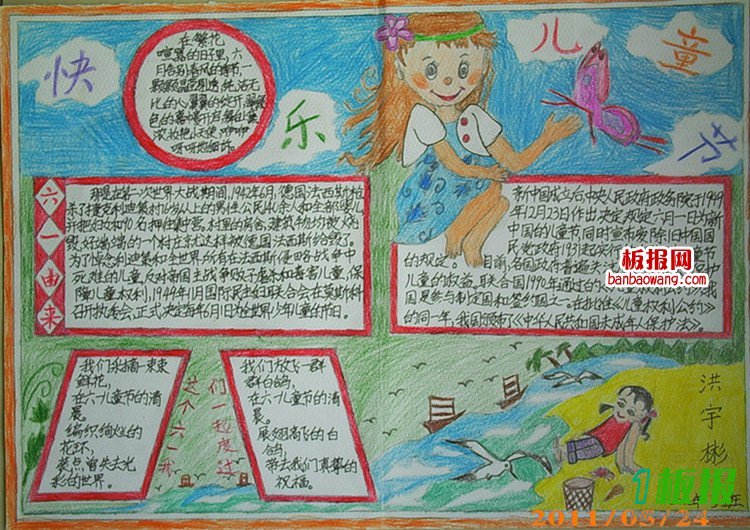 快
乐
儿
童
节
在繁花
喧嚣的日子里,六
月告别春风的
色的
板报网
banbaowang.com
六
一
由
来
那是在第一次世界大战期间,1942年6月,德国法西斯枪
杀了捷克利迪策村16岁以上的男性公民140余人和全部婴儿,
并把妇女和90名押往集中营。村里的房舍、建筑物均被火烧
毁,好端端的一个村庄就这样被德国法西斯给毁了。
为了悼念利迪策和全世界所有在法西斯侵略战争中
死难的儿童,反对帝国主义战争贩子虐杀和毒害儿童,保
障儿童权利,1949年11月国际民主妇联合会在莫斯科
召开执委会,正式决定每年6月1日为全世界少年儿童的节日。
新中国成立后,中央人民政府政务院于1949
年12月23日作出决定,规定六月一日为新
中国的儿童节,同时宣布废除旧中国国
民党政府1931起实行
的规定。目前,
各国政府普遍关
儿童的权益,联合国1990年通过的
国是参与制定国和签约国之一。在批准《儿童权利公约》
的同一年,我国颁布了《中华人民共和国未成年人保护法》。
我们采摘一束束
鲜花,
在六一儿童节的清
晨。
编织绚烂的
花环,
装点曾失去光
彩的世界。
们一起度过
这个六一
我们放飞一群
群白鸽,
在六一儿童节的清
晨。
展翅高飞的白
鸽,
带去我们真挚的
祝福。
洪
宇
彬
1板报